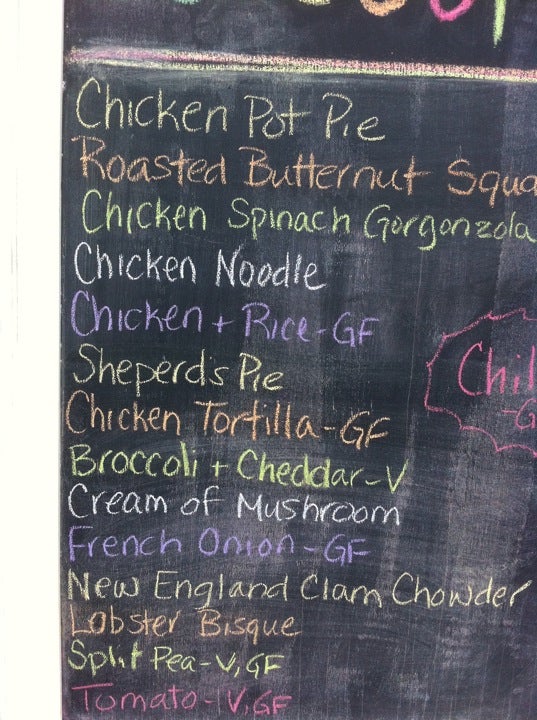 Chicken Pot Pie
Roasted Butternut Squa
Chicken Spinach Gorgonzola
Chicken Noodle
Chicken + Rice-GF
Sheperds Pie
Chil
-G
Chicken Tortilla-GF
Broccoli + Cheddar-V
Cream of Mushroom
French Onion-GF
New England Clam Chowder
Lobster Bisque
Split Pea-V,GF
Tomato-V,GF